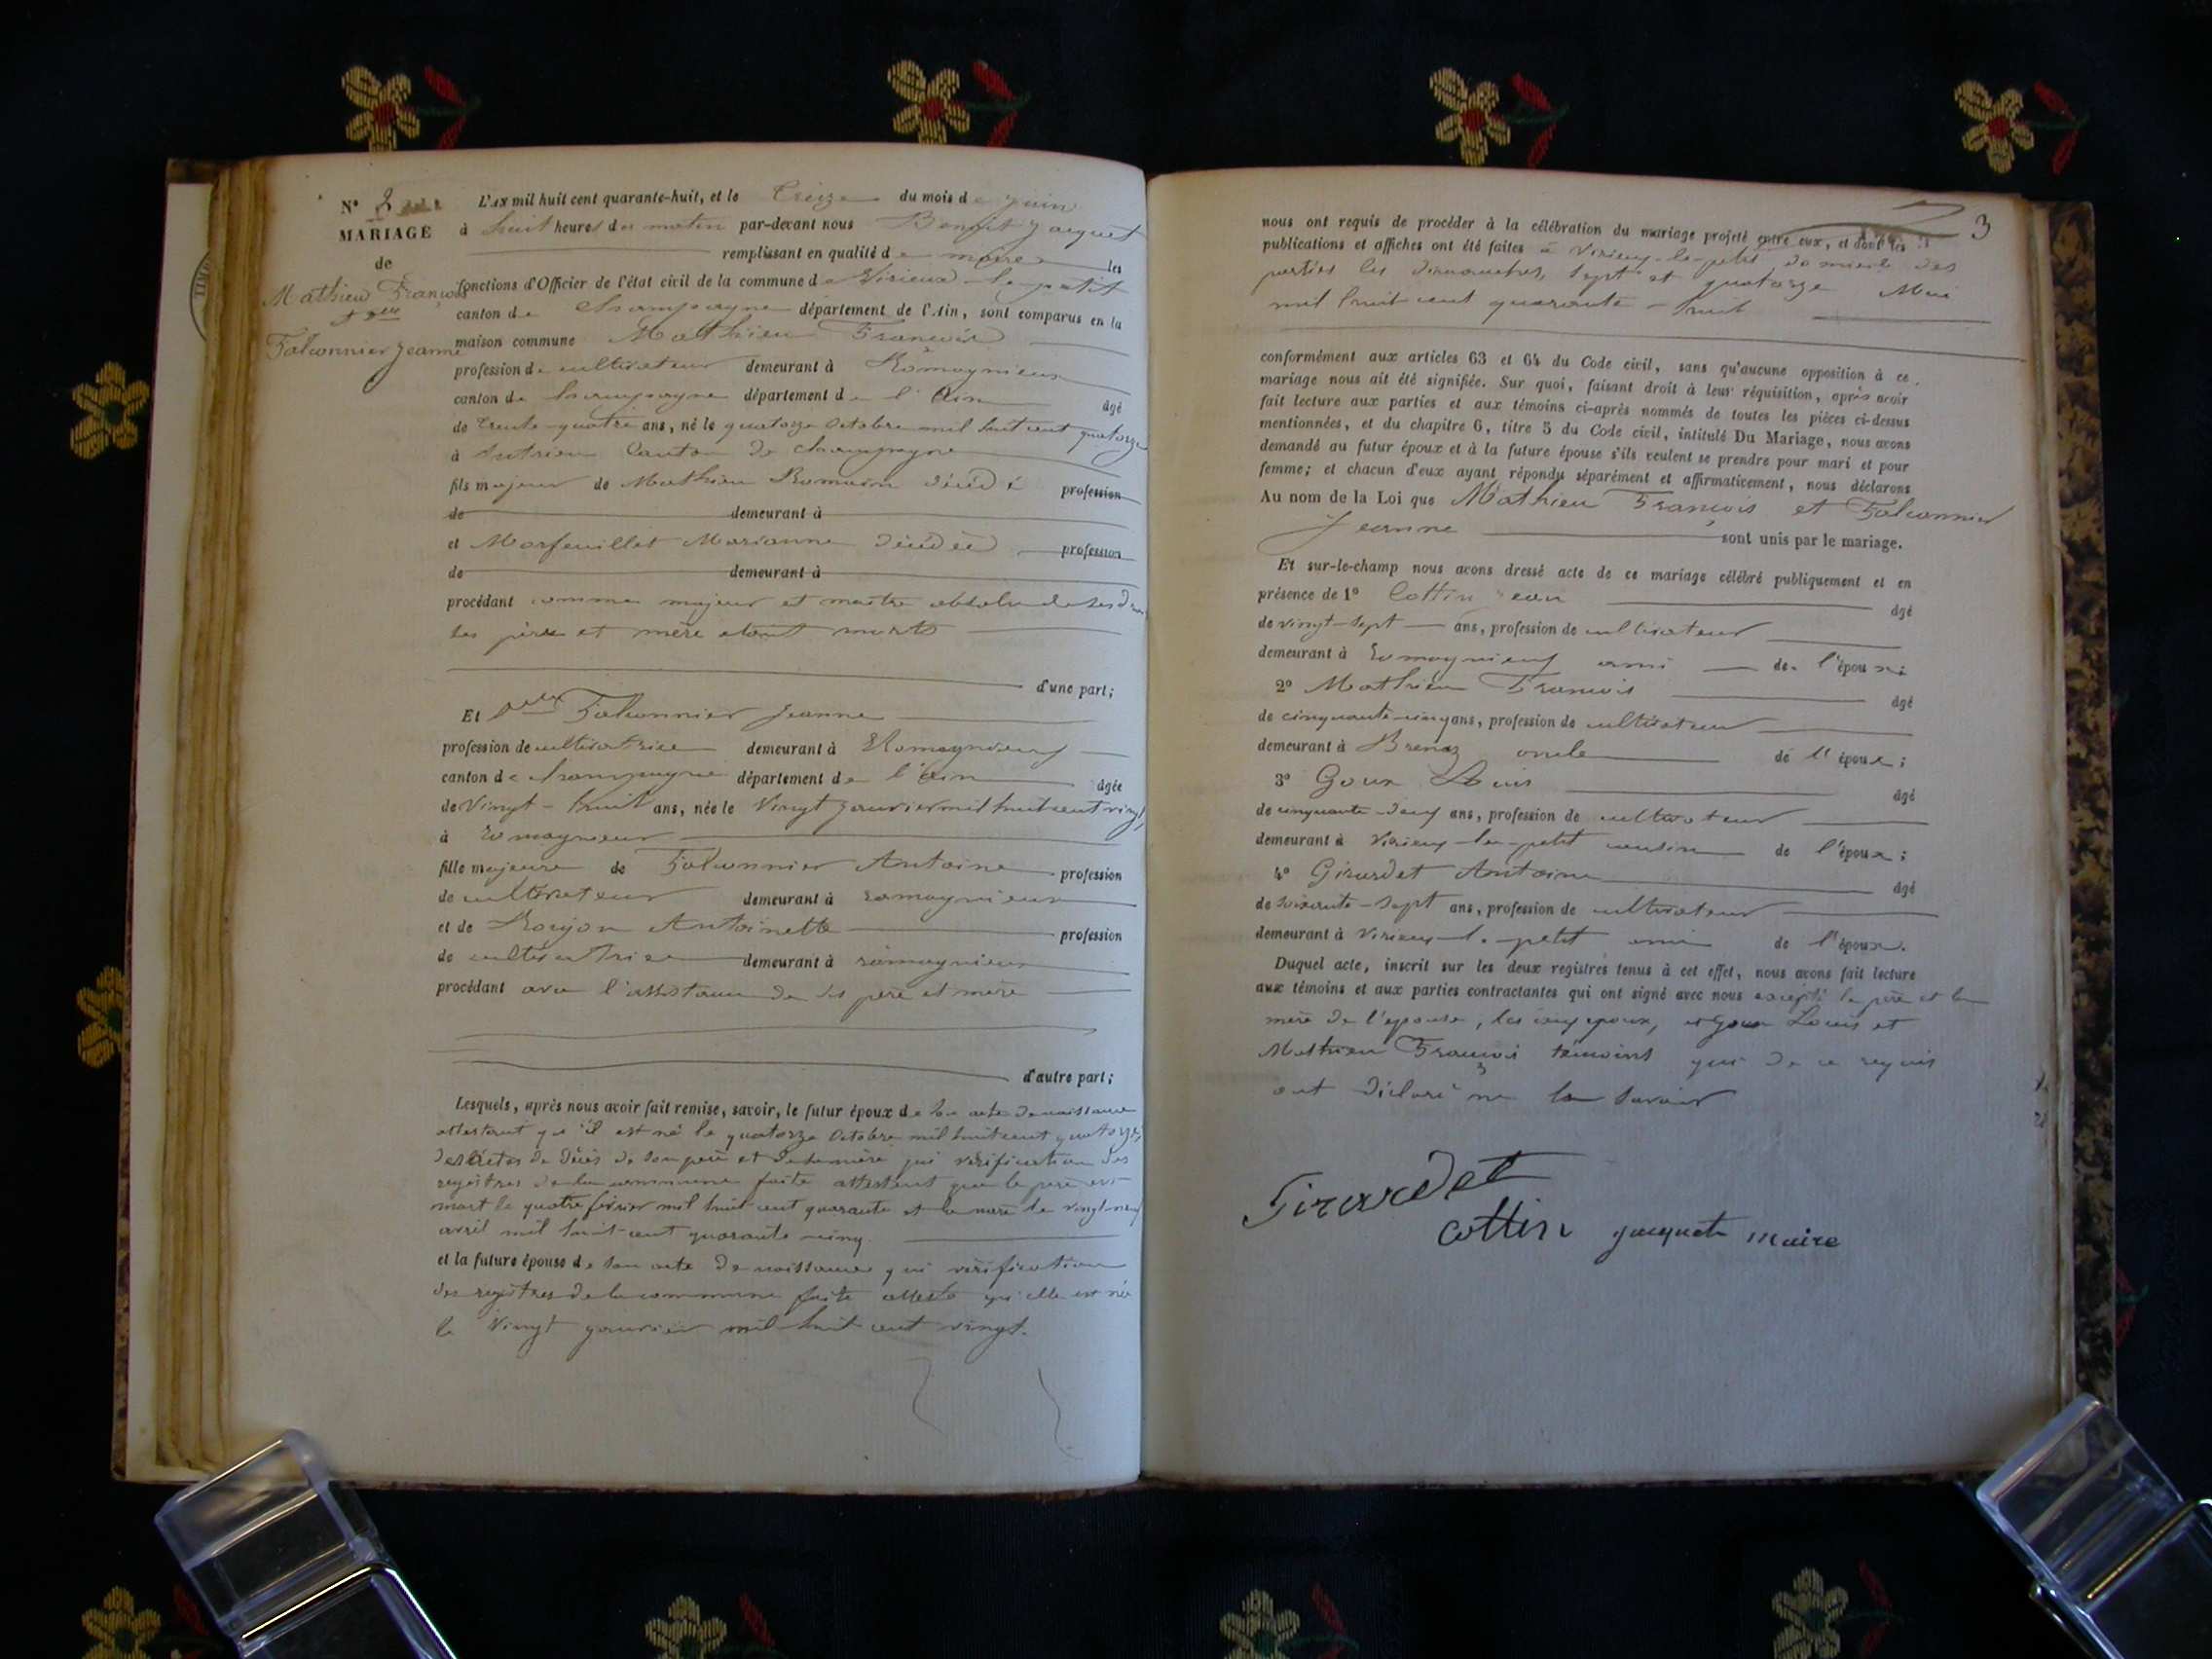 N° 3
MARIAGE
de
Mathieu François
et
Falconnier Jeanne
L'AN mil huit cent quarante-huit, et le treize du mois de juin
à huit heures du matin par-devant nous Benoit Jacquet
remplissant en qualité de maire les
fonctions d'Officier de l'état civil de la commune de Virieux-le-petit
canton de Champagne département de l'Ain, sont comparus en la
maison commune Mathieu François
profession de cultivateur demeurant à Romagnieux
canton de Champagne département de l'Ain âgé
de trente-quatre ans, né le quatorze Octobre mil huit cent quatorze
à Sutrieu Canton de Champagne
fils majeur de Mathieu Romain décédé profession
de demeurant à
et Marfeuillet Marianne décédée profession
de demeurant à
procédant comme majeur et maître absolu de ses
ses père et mère étant morts
d'une part;
Et Falconnier Jeanne
profession de cultivatrice demeurant à Romagnieux
canton de Champagne département de l'Ain âgée
de Vingt-huit ans, née le Vingt janvier mil huit cent vingt
à Romagnieux
fille majeure de Falconnier Antoine profession
de cultivateur demeurant à romagnieux
et de Antoinette profession
de cultivatrice demeurant à romagnieux
procédant avec l'assistance de ses père et mère
d'autre part;
Lesquels, après nous avoir fait remise, savoir, le futur époux de son acte de naissance
attestant qu'il est né le quatorze Octobre mil huit cent quatorze
des actes de décès de son père et de sa mère qui vérification des
registres de la commune faite attestent que le père est
mort le quatre février mil huit cent quarante et la mère le vingt-neuf
avril mil huit cent quarante cinq
et la future épouse de son acte de naissance qui vérification
des registres de la commune faite atteste qu'elle est née
le Vingt janvier mil huit cent vingt.
3
nous ont requis de procéder à la célébration du mariage projeté entre eux, et dont les
publications et affiches ont été faites à Virieux-le-petit domicile des
parties les dimanches, sept et quatorze Mai
mil huit cent quarante-huit
conformément aux articles 63 et 64 du Code civil, sans qu'aucune opposition à ce
mariage nous ait été signifiée. Sur quoi, faisant droit à leur réquisition, après avoir
fait lecture aux parties et aux témoins ci-après nommés de toutes les pièces ci-dessus
mentionnées, et du chapitre 6, titre 5 du Code civil, intitulé Du Mariage, nous avons
demandé au futur époux et à la future épouse s'ils veulent se prendre pour mari et pour
femme; et chacun d'eux ayant répondu séparément et affirmativement, nous déclarons
Au nom de la Loi que Mathieu François et Falconnier
Jeanne sont unis par le mariage.
Et sur-le-champ nous avons dressé acte de ce mariage célébré publiquement et en
présence de 1° Cottin Jean âgé
de vingt-sept ans, profession de cultivateur
demeurant à Romagnieux ami de l'époux;
2° Mathieu François âgé
de cinquante-cinq ans, profession de cultivateur
demeurant à Brenaz oncle de l'époux;
3° Goux Louis âgé
de cinquante-deux ans, profession de cultivateur
demeurant à Virieux-le-petit cousin de l'époux;
4° Girardet Antoine âgé
de soixante-sept ans, profession de cultivateur
demeurant à Virieux-le-petit ami de l'époux.
Duquel acte, inscrit sur les deux registres tenus à cet effet, nous avons fait lecture
aux témoins et aux parties contractantes qui ont signé avec nous excepté le père et la
mère de l'épouse, les époux, et Goux Louis et
Mathieu François témoins qui de ce requis
ont déclaré ne le savoir
Girardet
Cottin Jacquet maire